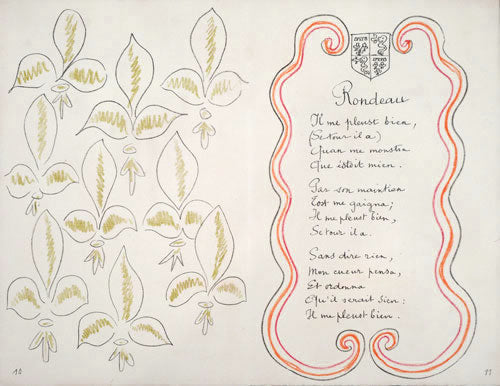 Rondeau
Il me pleust bien,
(Se tour il a)
Quan me monstra
Que estoit mien.
Par son maintien
Tost me gaigna;
Il me pleust bien,
Se tour il a.
Sans dire rien,
Mon cueur pensa,
Et ordonna
Qu'il serait sien:
Il me pleust bien.
10
11